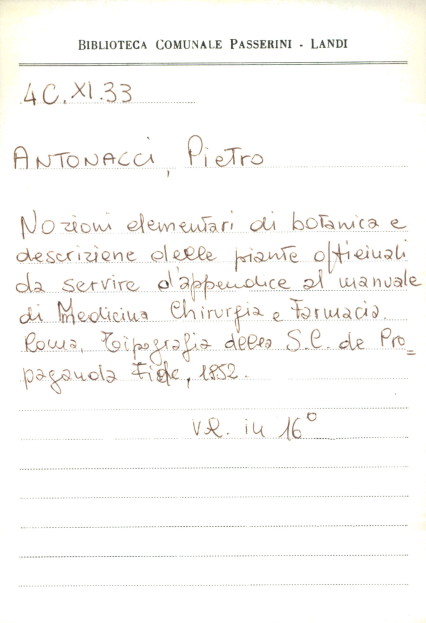 BIBLIOTECA COMUNALE PASSERINI - LANDI
4C.XI.33
ANTONACCI, Pietro
Nozioni elementari di botanica e
descrizione delle piante officinali
da servire d'appendice al manuale
di Medicina Chirurgia e Farmacia.
Roma, Tipografia della S.C. de Pro=
paganda Fide, 1852.
in 16°